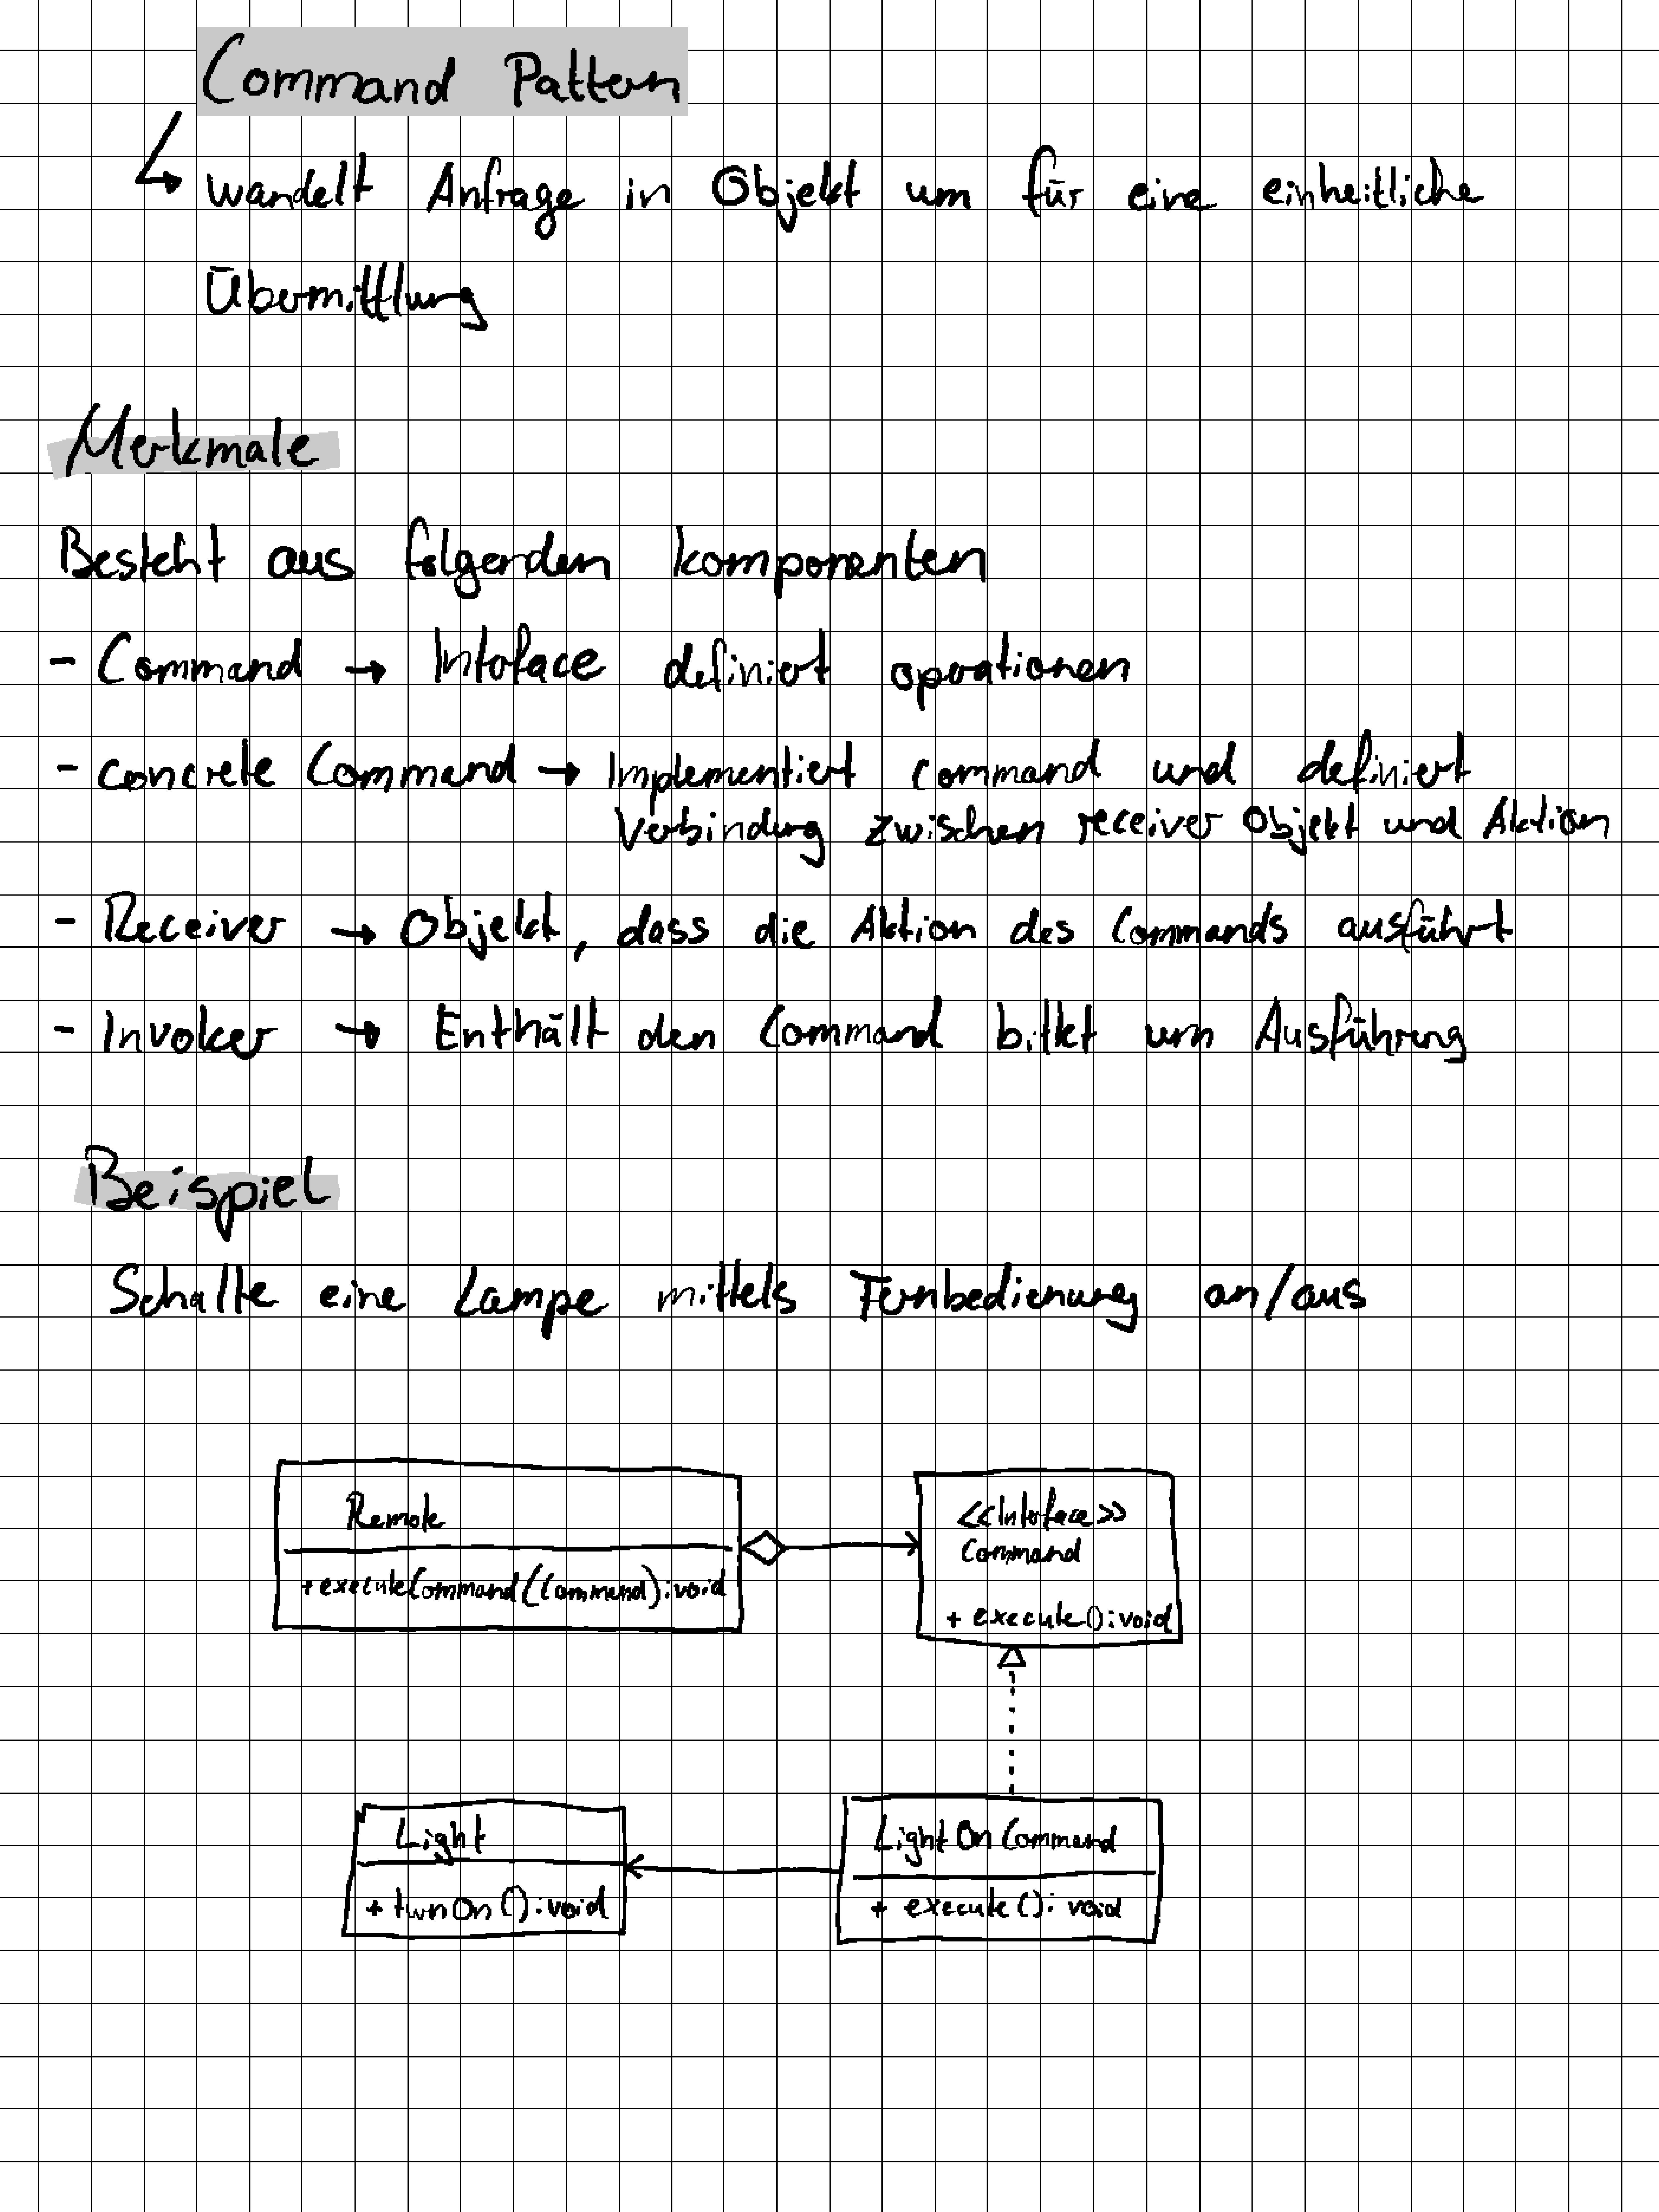 Command Pattern
↳ wandelt Anfrage in Objekt um für eine einheitliche
Übermittlung
Merkmale
Besteht aus folgenden komponenten
- Command → Interface definiert operationen
- concrete Command → Implementiert command und definiert
Verbindung zwischen receiver Objekt und Aktion
- Receiver → Objekt, dass die Aktion des Commands ausführt
- Invoker → Enthält den Command bittet um Ausführung
Beispiel
Schalte eine Lampe mittels Fernbedienung an/aus
Remote
+ executeCommand(Command): void
<<Interface>>
Command
+ execute(): void
Light
+ turnOn(): void
LightOnCommand
+ execute(): void